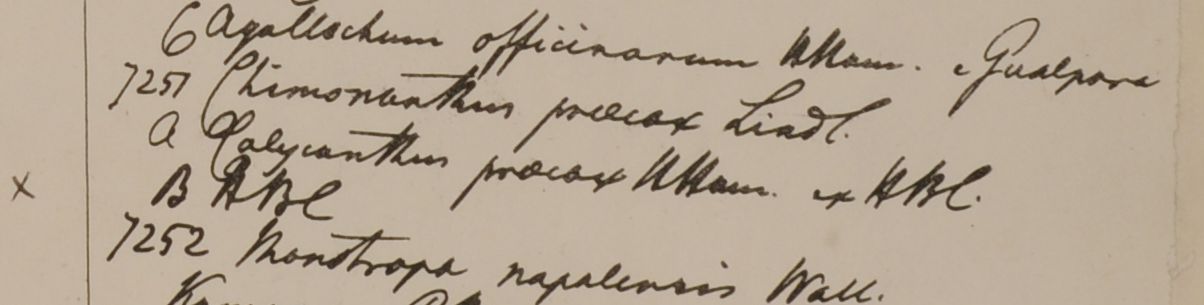 6 Agallochum officinarum HHam. e Gualpara
7251 Chimonanthus præcox Lindl.
a Calycanthus præcox HHam. ex HBC.
x B HBC
7252 Monotropa napalensis Wall.